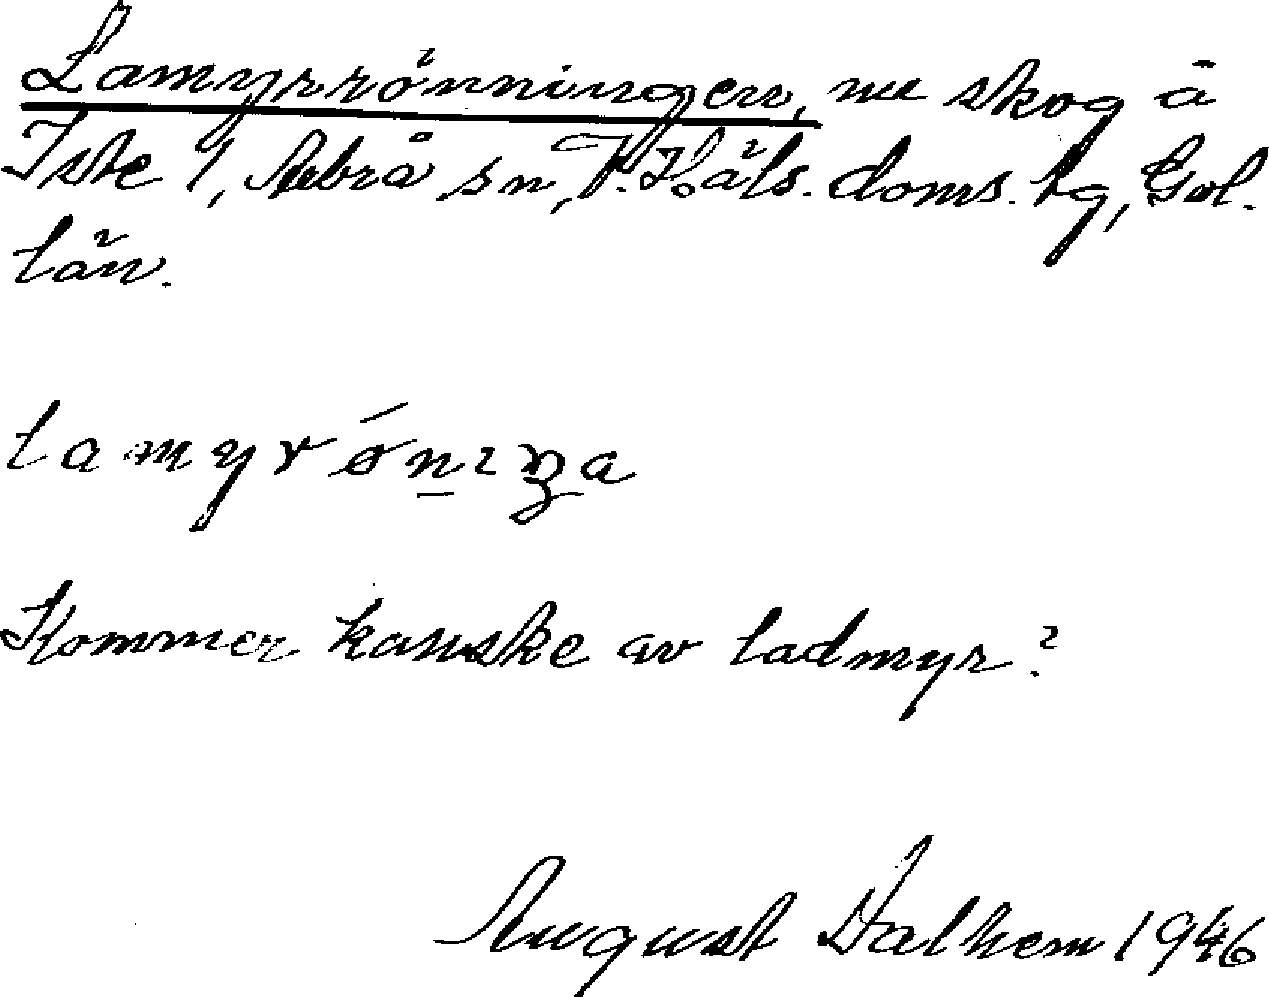 Lamyrrönningen, nu skog å
Iste 1, Arbrå sn, V. Häls. doms. hg, Gvl.
län.
lamyrǿnıŋa
Kommer kanske av ladmyr?
August Dalhem 1946